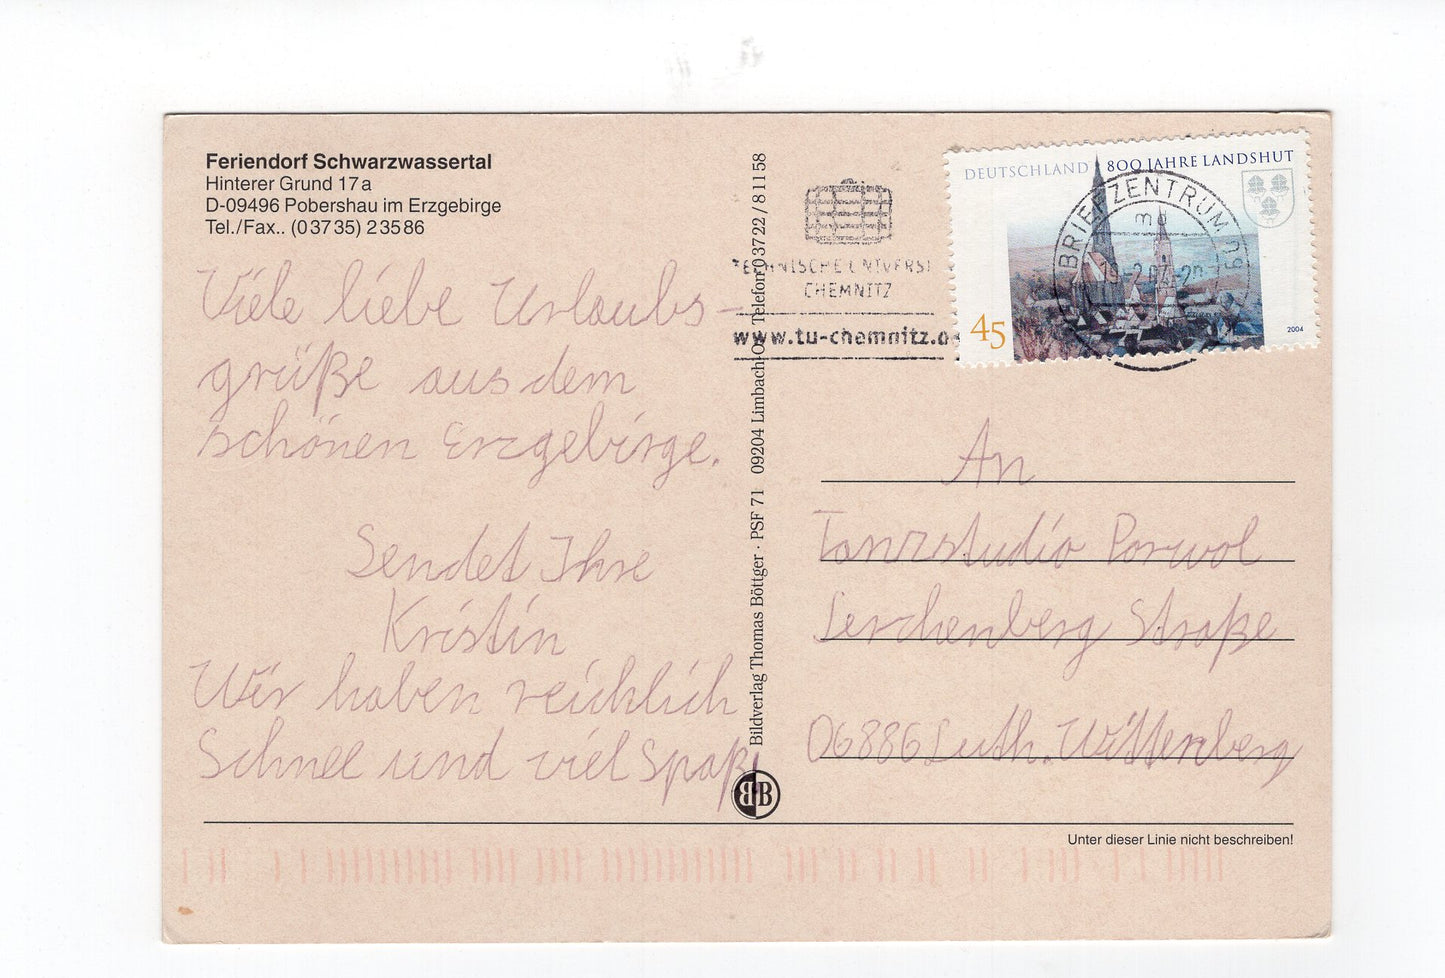 Feriendorf Schwarzwassertal
Hinterer Grund 17a
D-09496 Pobershau im Erzgebirge
Tel./Fax.. (03735) 23586
Viele liebe Urlaubs-
grüße aus dem
schönen Erzgebirge.
Sendet Ihre
Kristin
Wir haben reichlich
Schnee und viel Spaß!
Bildverlag Thomas Böttger · PSF 71 09204 Limbach-O. Telefon 03722/81158
BB
TECHNISCHE UNIVERSI
CHEMNITZ
www.tu-chemnitz.de
DEUTSCHLAND 800 JAHRE LANDSHUT
45
2004
BRIEFZENTRUM 09
md
19.2.04-20
An
Tanzstudio Porwol
Lerchenberg Straße
06886 Luth. Wittenberg
Unter dieser Linie nicht beschreiben!